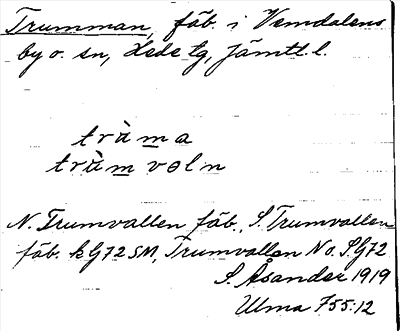 Trumman, fäb. i Vemdalens
by o. sn, Hede tg, Jämtl. l.
tràma
tràm voln
N. Trumvallen fäb., S. Trumvallen
fäb. k G72 SM, Trumvallen N o. S G72
S. Åsander 1919
Ulma 755:12